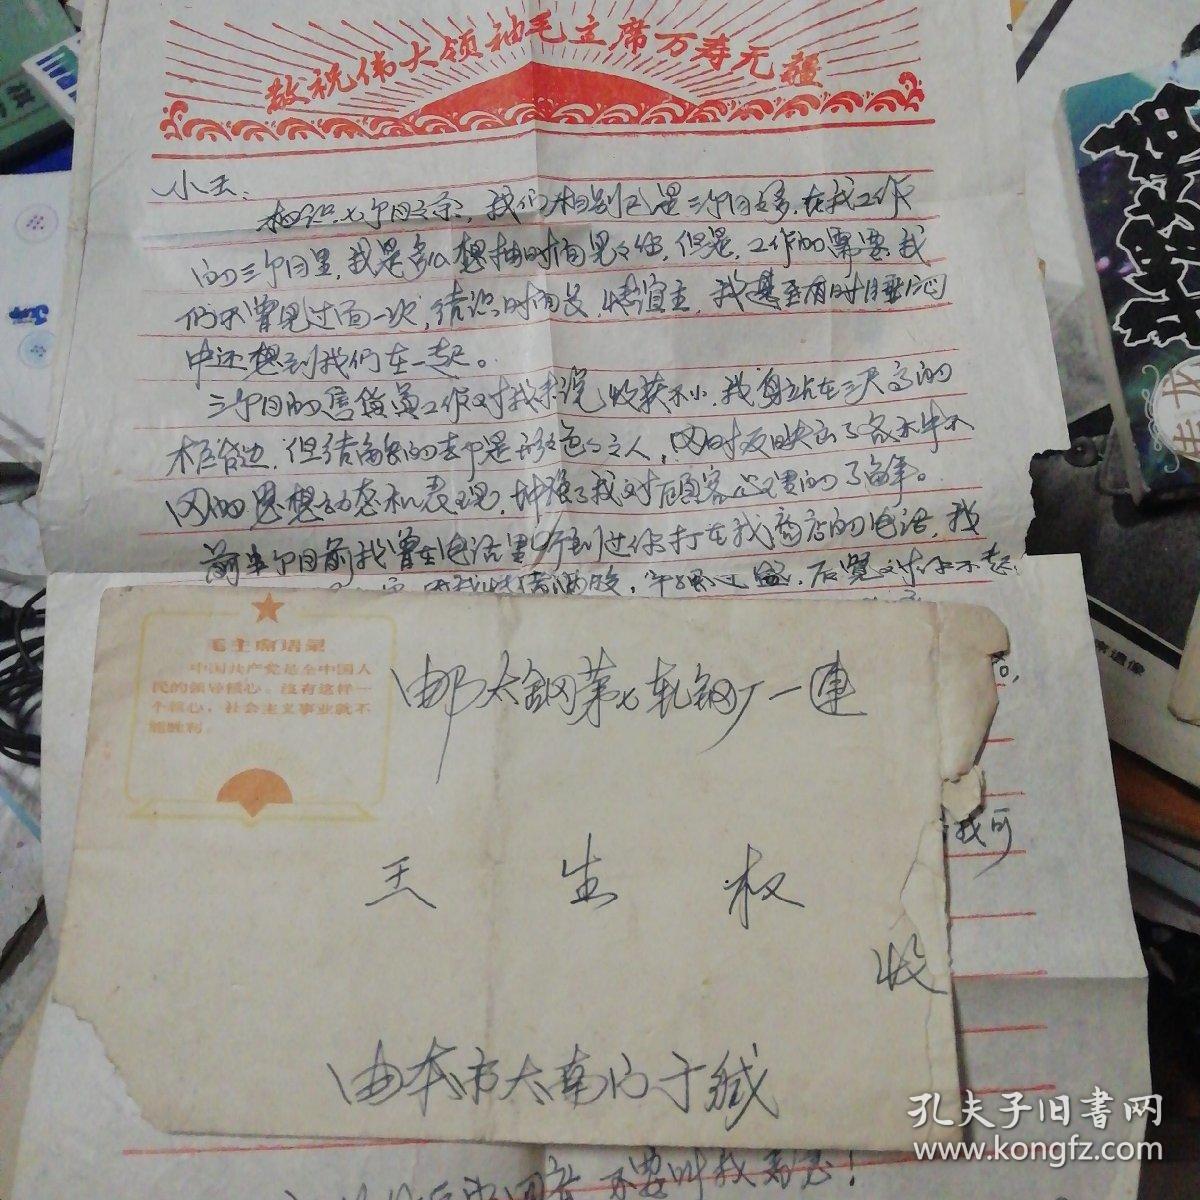 敬祝伟大领袖毛主席万寿无疆
小王:
相识七个月之余,我们相别已是三个月之多.在我工作
的三个月里,我是多么想抽时间见见你,但是,工作的需要我
们不曾见过面一次,结识时间长,情谊重,我甚至有时睡梦
中还想到我们在一起。
三个月的售货员工作对我来说,收获不小.我身站在三尺高的
柜台边,但结离别的都是形形色色之人,同时反映出了各不
同的思想动态和表现,增强了我对顾客心理的了解。
前半个月前我曾在电话里听到过你打在我商店的电话,我
后觉对你不起
毛主席语录
中国共产党是全中国人
民的领导核心。没有这样一
个核心,社会主义事业就不
能胜利。
邮太钢第七轧钢厂一连
王生权
收
由本市太南门于缄
我可
不要叫我
孔夫子旧书网
www.kongfz.com